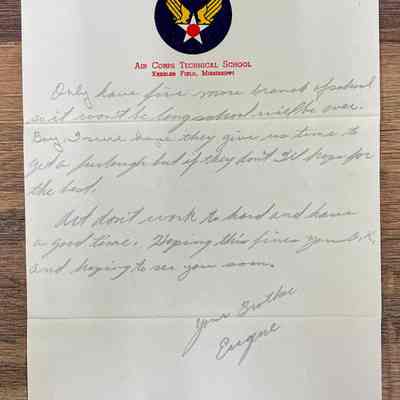 Air Corps Technical School
Keesler Field, Mississippi
Only have five more branch of school
so it won't be long school will be over.
Boy I sure hope they give us time to
get a furlough but if they don't I'll hope for
the best.
Art don't work to hard and have
a good time. Hoping this fines you O.K.
and hoping to see you soon.
Your Brother
Eugene